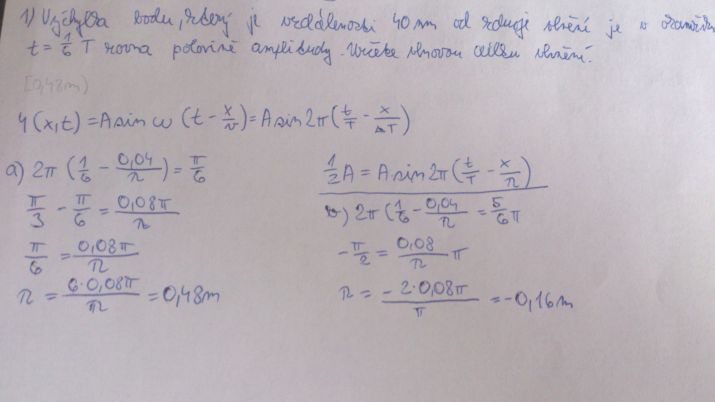 1) Výchylka bodu, který je vzdálenosti 40 mm od zdroje vlnění je v okamžiku
t = 1/6 T rovna polovině amplitudy. Určete vlnovou délku vlnění.
[0,48m]
y(x,t) = A sin ω (t - x/v) = A sin 2π (t/T - x/λT)
a) 2π (1/6 - 0,04/λ) = π/6
π/3 - π/6 = 0,08π/λ
π/6 = 0,08π/λ
λ = 6·0,08π/π = 0,48m
1/2 A = A sin 2π (t/T - x/λ)
b) 2π (1/6 - 0,04/λ = 5/6 π
-π/2 = 0,08/λ π
λ = -2·0,08π/π = -0,16m